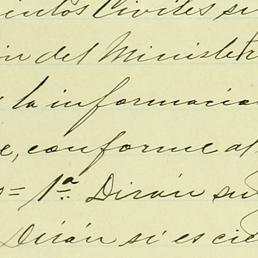 entos Civiles si
ón del Minister
la informacion
e, conforme al
s= 1ª Dirán su
Dirán si es cie